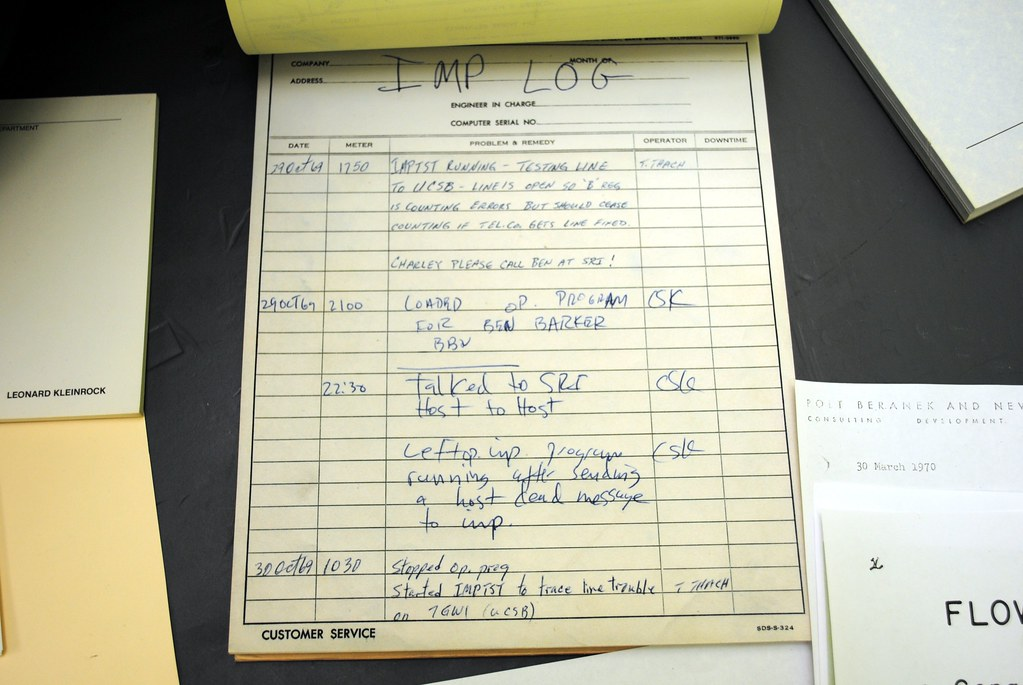 COMPANY MONTH OF
IMP LOG
ADDRESS
ENGINEER IN CHARGE
COMPUTER SERIAL NO.
DATE METER PROBLEM & REMEDY OPERATOR DOWNTIME
29 Oct 69 1750 IMPTST RUNNING - TESTING LINE T. THACH
TO UCSB - LINE IS OPEN SO "B" REG
IS COUNTING ERRORS BUT SHOULD CEASE
COUNTING IF TEL.CO. GETS LINE FIXED.
CHARLEY PLEASE CALL BEN AT SRI!
29 OCT 69 2100 LOADED OP. PROGRAM CSK
FOR BEN BARKER
BBN
22:30 Talked to SRI CSK
Host to Host
Left op. imp. program CSK
running after sending
a host dead message
to imp.
30 Oct 69 1030 Stopped Op. prog
Started IMPTST to trace line trouble T THACH
on (UCSB)
CUSTOMER SERVICE SDS-S-324
LEONARD KLEINROCK
BOLT BERANEK AND NEW
CONSULTING DEVELOPMENT
30 March 1970
FLOW